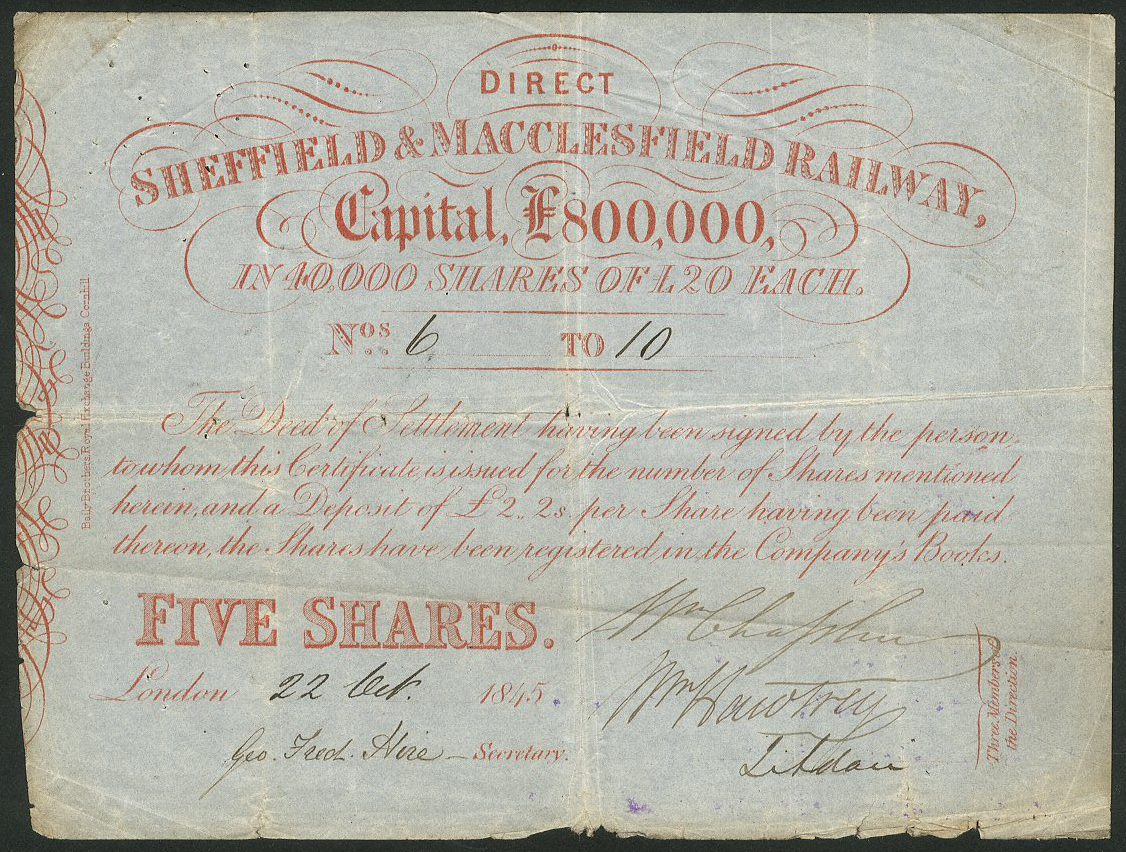 DIRECT
SHEFFIELD & MACCLESFIELD RAILWAY,
Capital, £800,000,
IN 40,000 SHARES OF £20 EACH.
Nos 6 TO 10
The Deed of Settlement having been signed by the person
to whom this Certificate is issued for the number of Shares mentioned
herein, and a Deposit of £2..2s. per Share having been paid
thereon, the Shares have been registered in the Company's Books.
FIVE SHARES.
London 22 Oct. 1845
Geo. Fred. Secretary.
Wm Chaplin
Wm Hawtrey
Three Members of
the Direction.
Baily Brothers Royal Exchange Buildings Cornhill